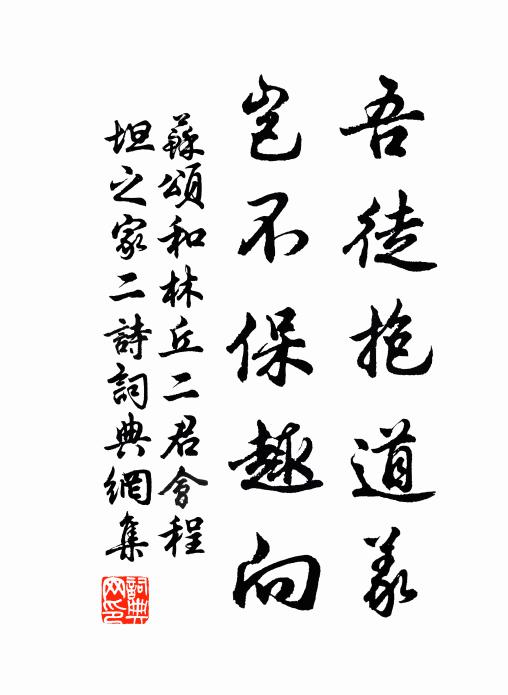 吾徒抱道義
豈不保趣向
蘇頌和林丘二君會程
坦之家二詩詞典網集
詞典網印